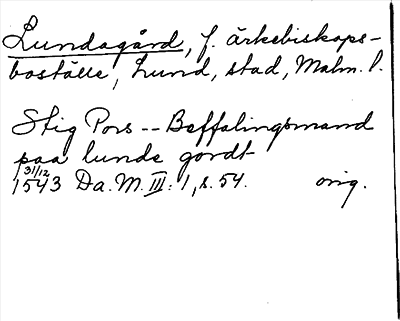 Lundagård, f. ärkebiskops-
boställe, Lund, stad, Malm. l.
Stig Pors -- Beffalingsmand
paa lunde gordt
31/12
1543 Da. M. III: 1, s. 54. orig.